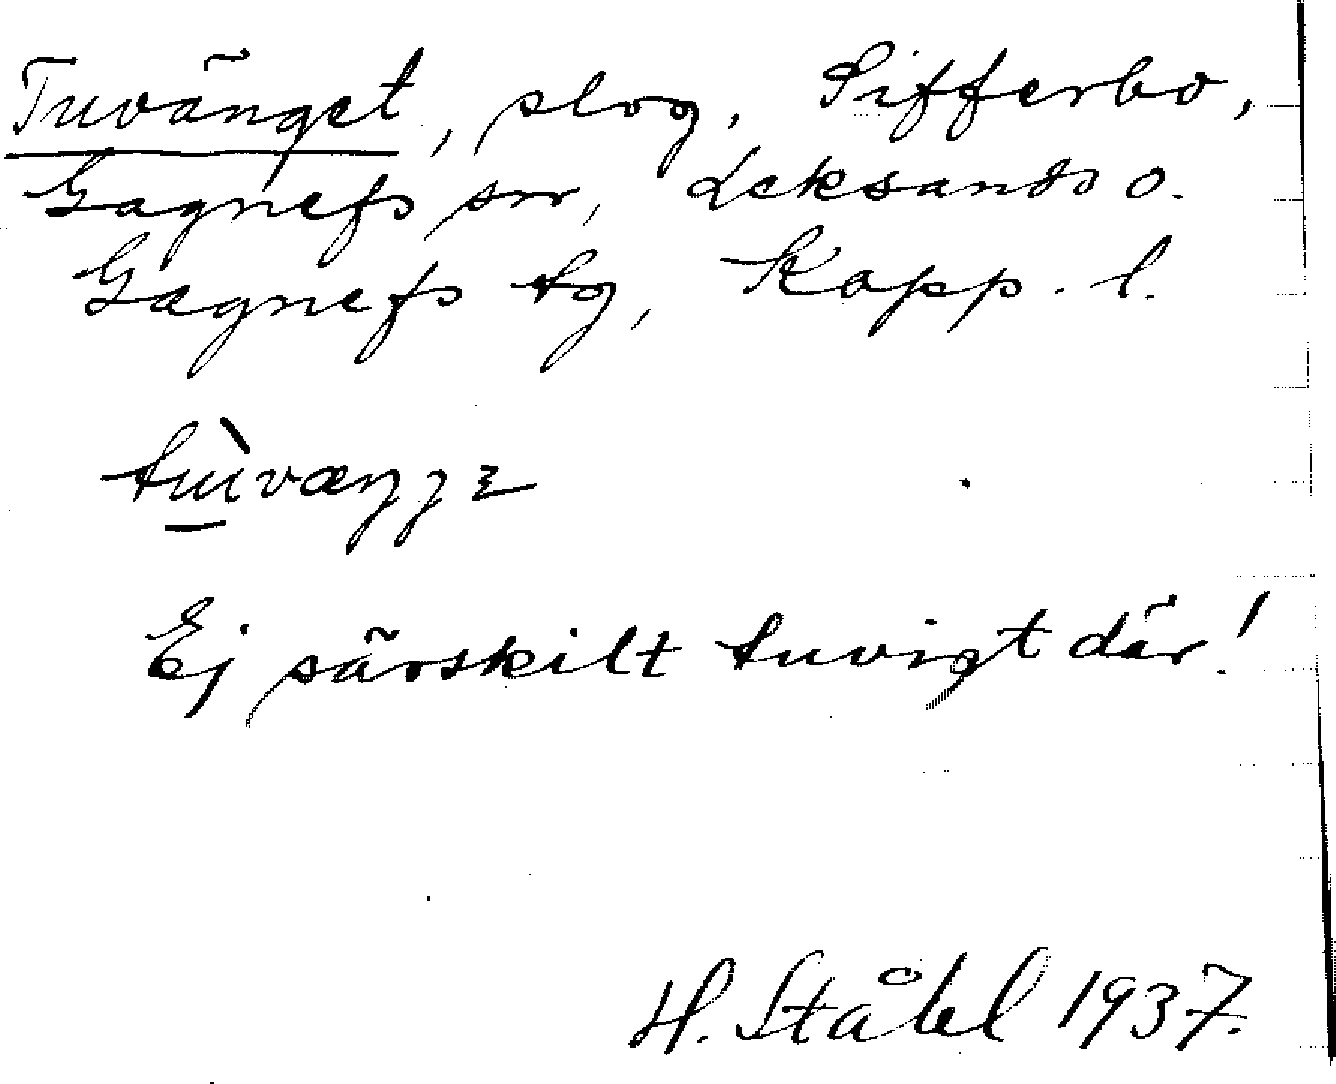 Tuvänget, slog, Sifferbo,
Gagnefs sn, Leksands o.
Gagnefs tg, Kopp. l.
Ej särskilt tuvigt där!
H. Ståhl 1937.